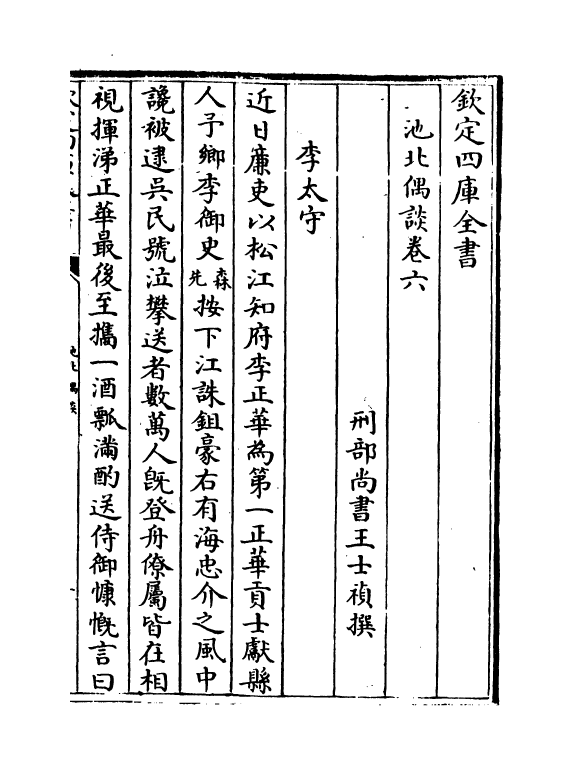 欽定四庫全書
池北偶談卷六
刑部尚書王士禎撰
李太守
近日廉吏以松江知府李正華為第一正華貢士獻縣
人予鄉李御史森先按下江誅鉏豪右有海忠介之風中
讒被逮吳民號泣攀送者數萬人既登舟僚屬皆在相
視揮涕正華最後至攜一酒瓢滿酌送侍御慷慨言曰
池北偶談